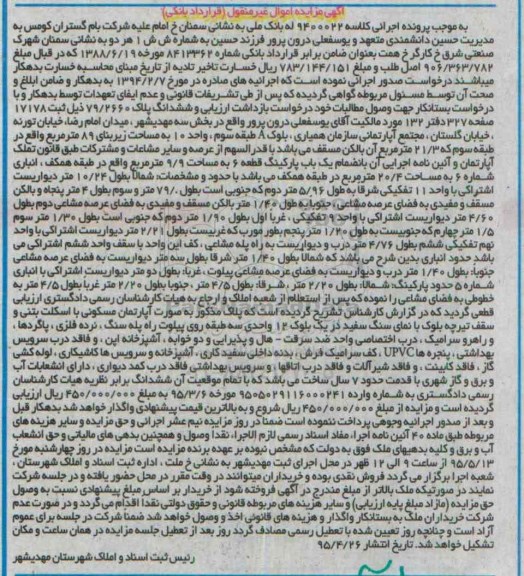 آگهی مزایده اموال غیرمنقول (قرارداد بانکی)
به موجب پرونده اجرائی کلاسه ۹۴۰۰۰۲۲ له بانک ملی به نشانی سمنان خ امام علیه شرکت بام گستران کومس به
مدیریت حسین دانشمندی متعهد و یوسفعلی درون پرور فرزند حسین به شماره ش ش ۱ هر دو به نشانی سمنان شهرک
صنعتی شرق خ کارگر خ همت بعنوان ضامن برابر قرارداد بانکی شماره ۸۴۱۳۳۶۲ مورخه ۱۳۸۸/۶/۱۹ که در قبال مبلغ
۹۰۶/۳۶۳/۷۸۲ اصل طلب و مبلغ ۷۸۳/۱۴۴/۱۵۱ ریال خسارت تاخیر تادیه از تاریخ مبنای محاسبه خسارت بدهکار
میباشند درخواست صدور اجرائی نموده است که اجرائیه های صادره در مورخ ۱۳۹۴/۲/۷ به بدهکار و ضامن ابلاغ و
صحت آن توسط مسئول مربوطه گواهی گردیده که پس از طی تشریفات قانونی و عدم ایفای تعهدات توسط بدهکار و با
درخواست بستانکار جهت وصول مطالبات خود درخواست بازداشت ارزیابی و ششدانگ پلاک ۷۹/۲۶۶۰ ذیل ثبت ۱۷۱۷۸
صفحه ۳۲۷ دفتر ۱۳۲ مورد مالکیت آقای یوسفعلی درون پرور واقع در بخش سه مهدیشهر ، میدان امام رضا، خیابان تورنه
، خیابان گلستان ، مجتمع آپارتمانی سازمان همیاری ، بلوک A طبقه سوم ، واحد ۱۰ به مساحت زیربنای ۸۹ مترمربع واقع در
طبقه سوم که ۲۱/۳ مترمربع آن بالکن مسقف می باشد با قدرالسهم از عرصه و سایر مشاعات و مشترکات طبق قانون تملک
آپارتمان و آئین نامه اجرایی آن بانضمام یک باب پارکینگ قطعه ۶ به مساحت ۹/۹ مترمربع واقع در طبقه همکف ، انباری
شماره ۶ به مساحت ۲۰/۴ مترمربع در طبقه همکف می باشد با حدود و مشخصات: شمالا بطول ۱۰/۲۴ متر دیواریست
اشتراکی با واحد ۱۱ تفکیکی شرقا به طول ۵/۹۶ متر دوم که جنوبی است بطول ۷۹/. متر و سوم بطول ۴ متر پنجاه و بالکن
مسقف و مفیدی به فضای عرصه مشاعی ، جنوبا به طول ۱/۴۰ متر بالکن مسقف و مفیدی به فضای عرصه مشاعی دوم بطول
۴/۶۰ متر دیواریست اشتراکی با واحد ۹ تفکیکی ، غربا اول بطول ۱/۹۰ متر دوم که جنوبی است بطول ۱/۳۰ متر سوم
۱/۵ متر چهارم که جنوبیست به طول ۱/۲۰ متر پنجم بطور مورب که غربیست بطول ۲/۲۱ متر دیواریست اشتراکی با واحد
نهم تفکیکی ششم بطول ۴/۷۶ متر درب و دیواریست به راه پله مشاعی ، کف این واحد با سقف واحد ششم اشتراکی می
باشد حدود انباری بدین شرح می باشد که شمالا بطول ۱/۴۰ متر شرقا بطول سه متر دیواریست به فضای عرصه مشاعی
جنوبا: بطول ۱/۴۰ متر درب و دیواریست به فضای عرصه مشاعی پیلوت ، غربا: بطول دو متر دیواریست اشتراکی با انباری
شماره ۵ حدود پارکینگ: شمالا: بطول ۲/۲۰ متر ، شرقا: بطول ۴/۵ متر ، جنوبا بطول ۲/۲۰ متر غربا بطول ۴/۵ متر به
خطوطی به فضای مشاعی را نموده که پس از استعلام از شعبه املاک و ارجاع به هیات کارشناسان رسمی دادگستری ارزیابی
قطعی گردید که در گزارش کارشناس تشریح گردیده است که پلاک مذکور به صورت آپارتمان مسکونی با اسکلت بتنی و
سقف تیرچه بلوک با نمای سنگ سفید در یک بلوک ۱۲ واحدی سه طبقه روی پیلوت راه پله سنگ ، نرده فلزی ، پاگردها ،
و راهرو سرامیک ، درب اختصاصی واحد ضد سرقت – هال و پذیرایی و دو خوابه ، آشپزخانه اپن ، و فاقد درب سرویس
بهداشتی ، پنجره ها UPVC ، کف سرامیک فرش ، بدنه داخلی سفید کاری ، آشپزخانه و سرویس ها کاشیکاری ، لوله کشی
گاز ، فاقد کابینت ، و فاقد شیرآلات و فاقد درب اتاقها و سرویس بهداشتی فاقد درب کمد دیواری ، دارای انشعابات آب
و برق و گاز شهری با قدمت حدود ۷ سال ساخت می باشد که با تمام موقعیت آن ششدانگ برابر نظریه هیات کارشناسان
رسمی دادگستری به شماره وارده ۹۵۰۵۰۲۹۱۱۶۰۰۰۲۴۱ مورخه ۹۵/۳/۶ به مبلغ ۴۵۰/۰۰۰/۰۰۰ ریال ارزیابی
گردیده است و مزایده از مبلغ ۴۵۰/۰۰۰/۰۰۰ ریال شروع و به بالاترین قیمت پیشنهادی واگذار خواهد شد بدهکار قبل
و بعد از صدور اجرائیه وجوهی پرداخت ننموده است ضمنا در روز مزایده نیم عشر اجرائی و حق مزایده و سایر هزینه های
مربوطه طبق ماده ۴۰ آئین نامه اجرا، مفاد اسناد رسمی لازم الاجرا، نقدا وصول و همچنین بدهی های مالیاتی و حق انشعاب
آب و برق و کلیه بدهیهای ملک فوق به دولت که مشخص نبوده بر عهده برنده مزایده است مزایده در روز چهارشنبه مورخ
۹۵/۵/۱۳ از ساعت ۹ الی ۱۲ ظهر در محل اجرای ثبت مهدیشهر به نشانی خ ملت ، اداره ثبت اسناد و املاک شهرستان ،
شعبه اجرا برگزار می گردد فروش نقدی بوده و خریداران میتوانند در وقت مقرر در محل حضور یافته و در جلسه شرکت
نمایند در صورتیکه ملک بالاتر از مبلغ مندرج در آگهی فروخته شود از خریدار بر اساس مبلغ پیشنهادی نسبت به وصول
حق مزایده (مازاد مبلغ پایه ارزیابی) و سایر هزینه های مربوطه قانونی و حقوق دولتی نقدا اقدام می گردد و در صورت عدم
شرکت خریداران ملک به بستانکار واگذار و هزینه های قانونی اخذ و وصول خواهد شد ضمنا شرکت در جلسه برای عموم
آزاد است و چنانچه روز تعیین شده با تعطیل رسمی مصادف گردد روز بعد از تعطیل جلسه مزایده در همان ساعت و مکان
تشکیل خواهد شد. تاریخ انتشار ۹۵/۴/۲۶
رئیس ثبت اسناد و املاک شهرستان مهدیشهر